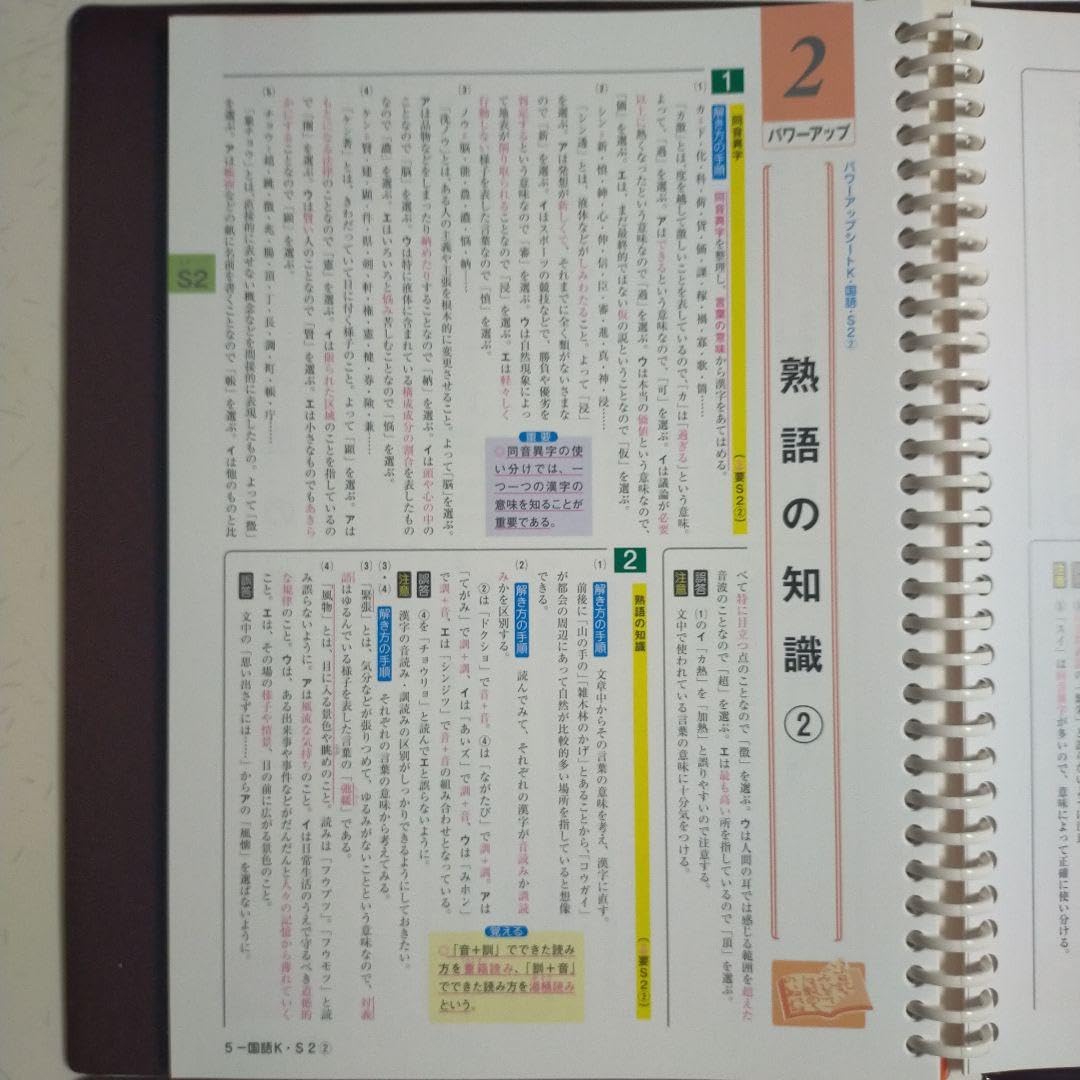 2
パワーアップ
パワーアップシートK・国語・S2②
熟語の知識②
1
同音異字
(要S2②)
解き方の手順 同音異字を整理し、言葉の意味から漢字をあてはめる。
(1) カ=下・化・科・荷・貨・価・課・稼・禍・寡・歌・箇……
「カ激」とは、度を越して激しいことを表しているので、「カ」は「過ぎる」という意味。
よって、「過」を選ぶ。アはできるという意味なので、「可」を選ぶ。イは議論が必要
以上に熱くなったという意味なので「過」を選ぶ。ウは本当の価値という意味なので、
「価」を選ぶ。エは、まだ最終的ではない仮の説ということなので「仮」を選ぶ。
(2) シン=新・慎・紳・心・伸・信・臣・審・進・真・神・浸……
「シン透」とは、液体などがしみわたること。よって「浸」
を選ぶ。アは発想が新しくて、それまでに全く類がないさまな
ので「新」を選ぶ。イはスポーツの競技などで、勝負や優劣を
判定するという意味なので「審」を選ぶ。ウは自然現象によっ
て地表が削り取られることなので「浸」を選ぶ。エは軽々しく
行動しない様子を表した言葉なので「慎」を選ぶ。
重要
◎同音異字の使
い分けでは、一
つ一つの漢字の
意味を知ることが
重要である。
(3) ノウ=脳・能・農・濃・悩・納……
「洗ノウ」とは、ある人の主義や主張を根本的に変更させること。よって「脳」を選ぶ。
アは品物などをしまったり納めたりすることなので「納」を選ぶ。イは頭や心の中の
ことなので「脳」を選ぶ。ウは特に液体に含まれている構成成分の割合を表したもの
なので「濃」を選ぶ。エはいろいろと悩み苦しむことなので「悩」を選ぶ。
(4) ケン=賢・建・顕・件・県・剣・軒・権・憲・健・券・険・兼……
「ケン著」とは、きわだっていて目に付く様子のこと。よって「顕」を選ぶ。アは
もとになる法律のことなので「憲」を選ぶ。イは限られた区域のことを指しているの
で「圏」を選ぶ。ウは賢い人のことなので「賢」を選ぶ。エは小さなものでもあきら
かにすることなので「顕」を選ぶ。
(5) チョウ=超・跳・徴・兆・腸・頂・丁・長・調・町・帳・庁……
「象チョウ」とは、直接的に表せない概念などを間接的に表現したもの。よって「徴」
を選ぶ。アは帳面などの紙に名前を書くことなので「帳」を選ぶ。イは他のものと比
べて特に目立つ点のことなので「徴」を選ぶ。ウは人間の耳では感じる範囲を超えた
音波のことなので「超」を選ぶ。エは最も高い所を指しているので「頂」を選ぶ。
誤答注意 (1)のイ「カ熱」を「加熱」と誤りやすいので注意する。
文中で使われている言葉の意味に十分気をつける。
2
熟語の知識
(要S2②)
(1) 解き方の手順 文章中からその言葉の意味を考え、漢字に直す。
前後に「山の手の」「雑木林のかげ」とあることから、「コウガイ」
が都会の周辺にあって自然が比較的多い場所を指していると想像
できる。
(2) 解き方の手順 読んでみて、それぞれの漢字が音読みか訓読
みかを区別する。
②は「ドクショ」で音+音。④は「ながたび」で訓+訓。アは
「てがみ」で訓+訓、イは「あいズ」で訓+音、ウは「みホン」
で訓+音、エは「シンジツ」で音+音の組み合わせとなっている。
誤答注意 ④を「チョウリョ」と読んでエと誤らないように。
漢字の音読み・訓読みの区別がしっかりできるようにしておきたい。
覚える
◎「音+訓」でできた読み
方を重箱読み、「訓+音」
でできた読み方を湯桶読み
という。
(3)・(4) 解き方の手順 それぞれの言葉の意味から考えてみる。
(3) 「緊張」とは、気分などが張りつめて、ゆるみがないことという意味なので、対義
語はゆるんでいる様子を表した言葉の「弛緩」である。
(4) 「風物」とは、目に入る景色や眺めのこと。読みは「フウブツ」。「フウモツ」と読
み誤らないように。アは風流な気持ちのこと。イは日常生活のうえで守るべき道徳的
な規律のこと。ウは、ある出来事や事件などがだんだんと人々の記憶から薄れていく
こと。エは、その場の様子や情景、目の前に広がる景色のこと。
誤答 文中の「思い出さずには……」からアの「風懐」を選ばないように。
S2
5－国語K・S2②
注意
が多いので、意味によって正確に使い分ける。